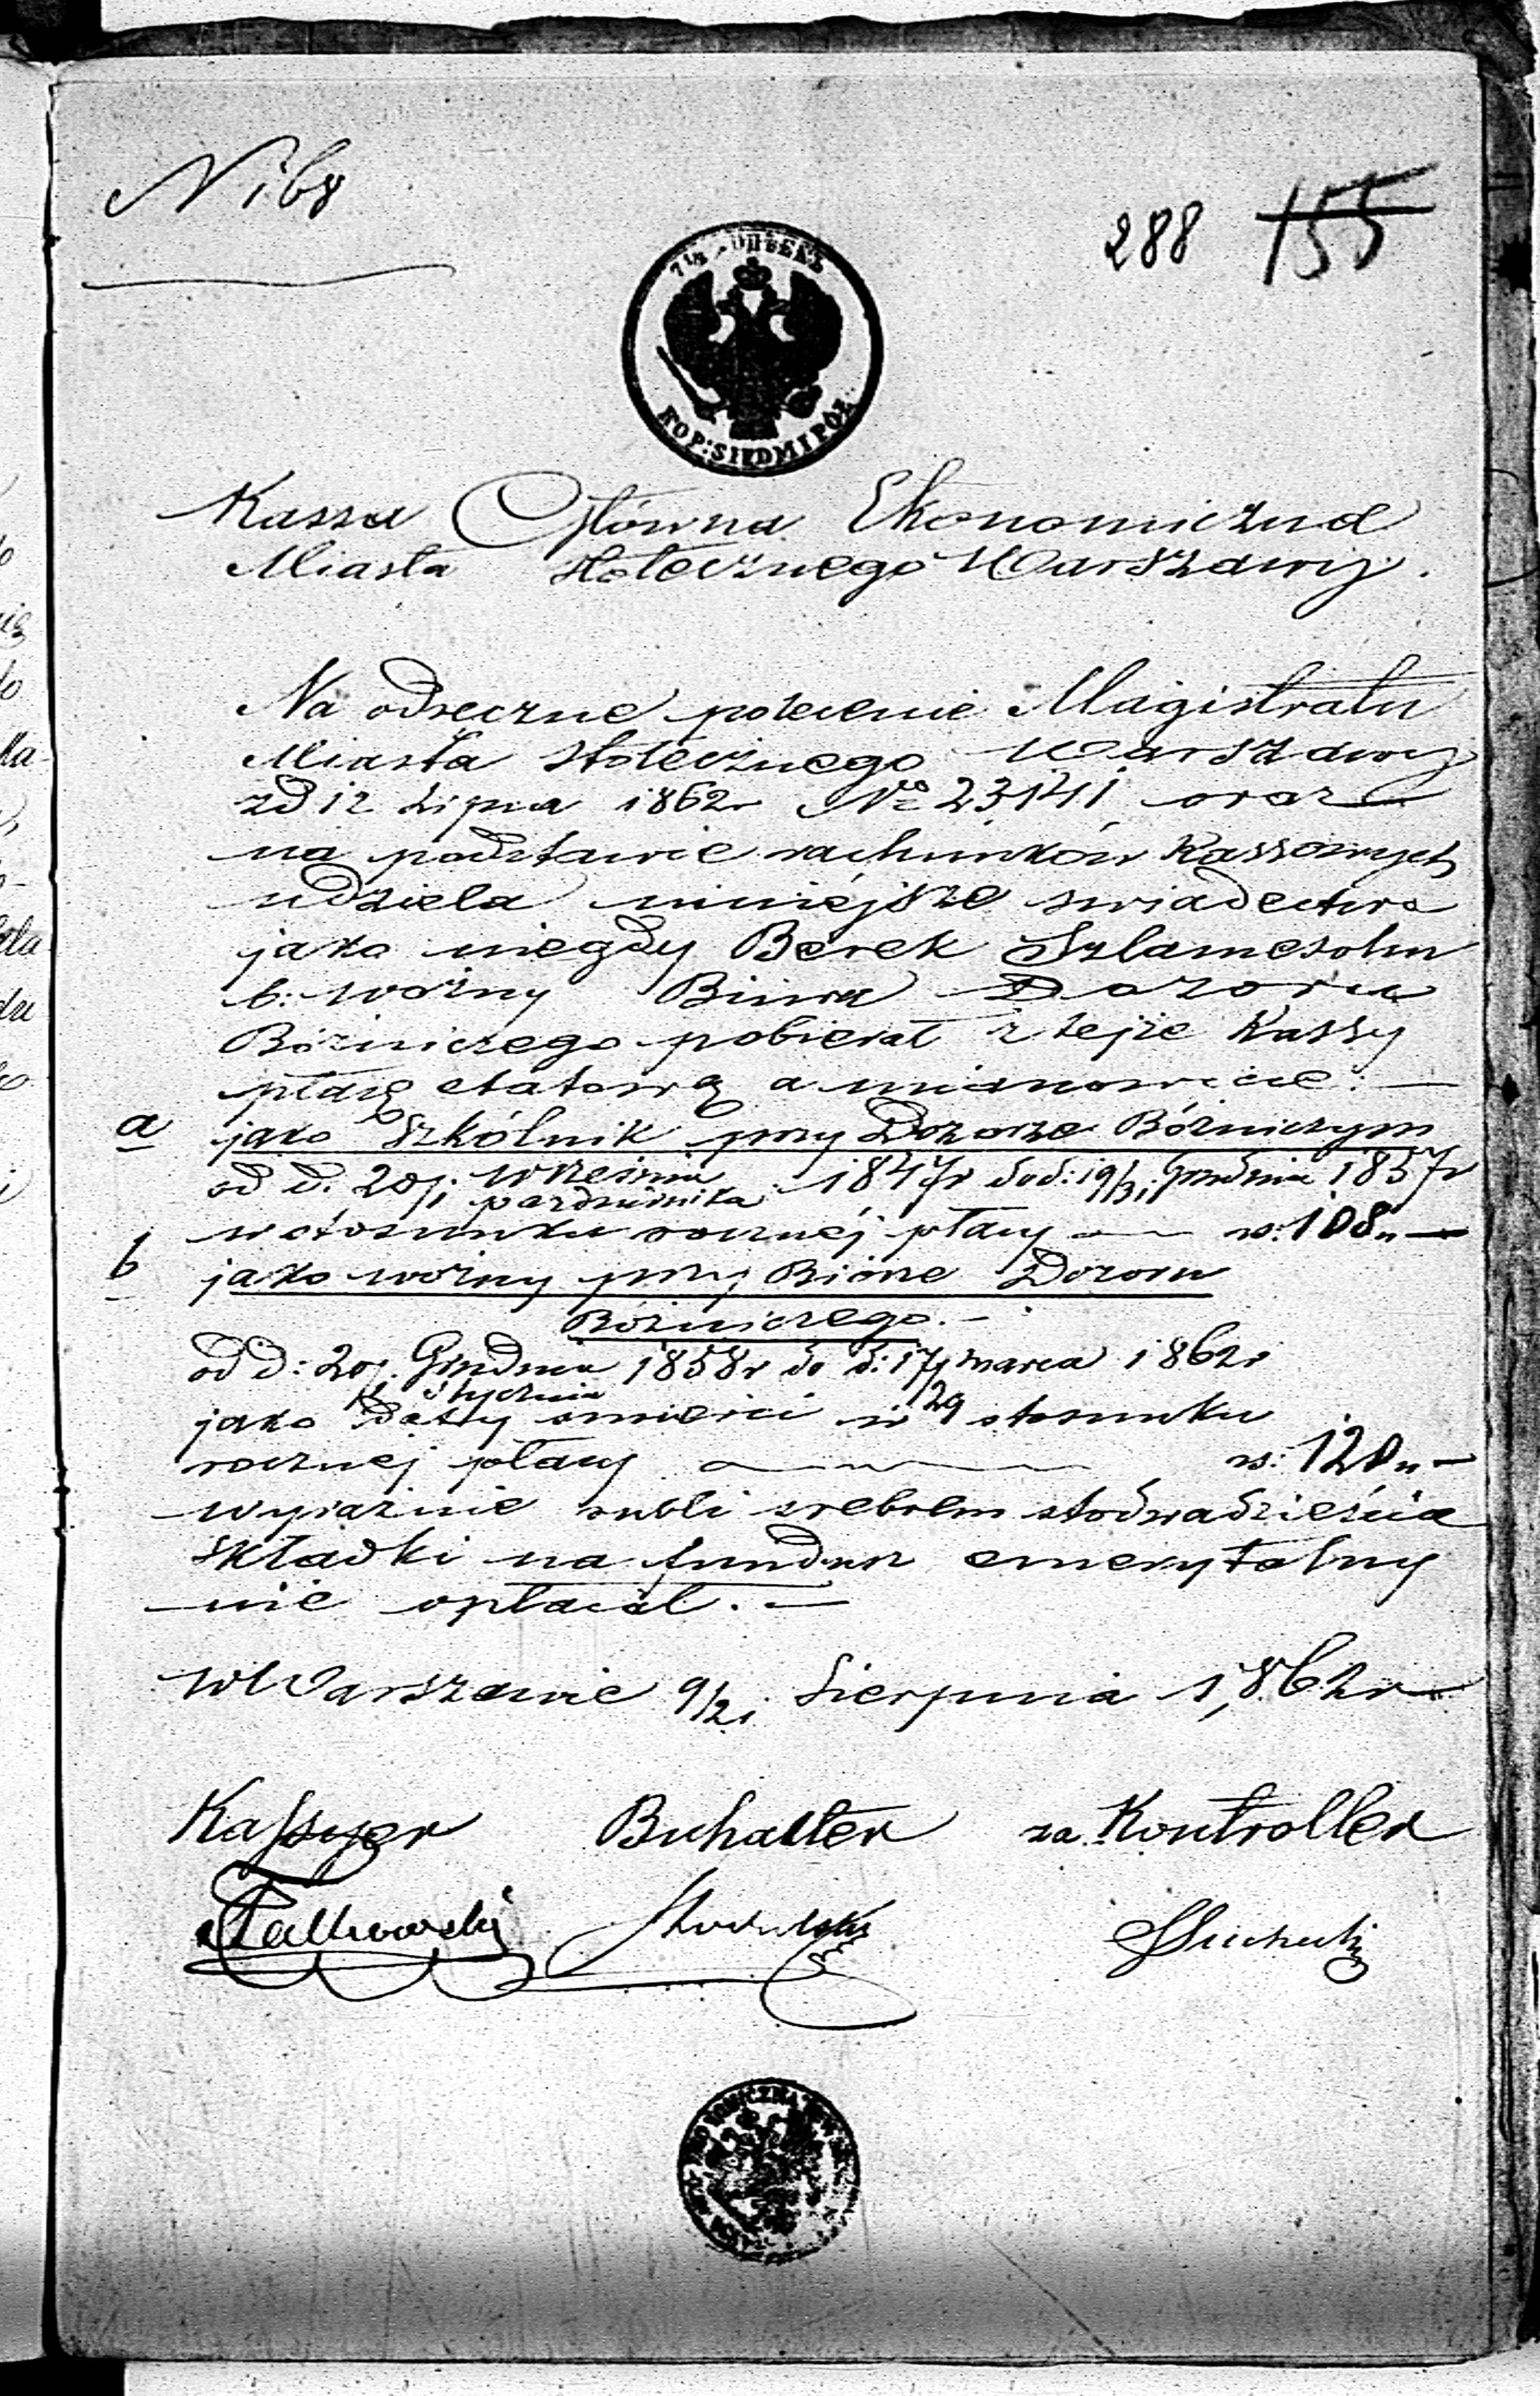 N 168
288 155
7½ КОПѢЕКЪ
KOP: SIEDMIPÓŁ
Kassa Główna Ekonomiczna
Miasta stołecznego Warszawy.
Na odręczne polecenie Magistratu
Miasta Stołecznego Warszawy
zd 12 Lipca 1862r No 23141 oraz
na podstawie rachunków Kassowych
udziela niniejsze swiadectwo
jako niegdy Berek Szlamesohn
b: woźny Biura Dozoru
Bóżniczego pobierał z tejże Kassy
płacę etatową a mianowicie: —
a jako Szkólnik przy Dozorze Bóżniczym
od d. 20/1 Września Pazdziernika 1847r do d: 19/31 Grudnia 1857r
w stosunku rocznej płacy — rs: 108„—
b jako woźny przy Biórze Dozoru
Bóżniczego. —
od d: 20/1 Grudnia Stycznia 1858r do d: 17/29 marca 1862r
jako daty smierci w stosunku
rocznej płacy — rs: 120„—
wyraźnie rubli srebrem stodwadzieścia
składki na fundusz emerytalny
nie opłacał. —
w Warszawie 9/21 Sierpnia 1862r
Kassyer Buhalter za Kontroller